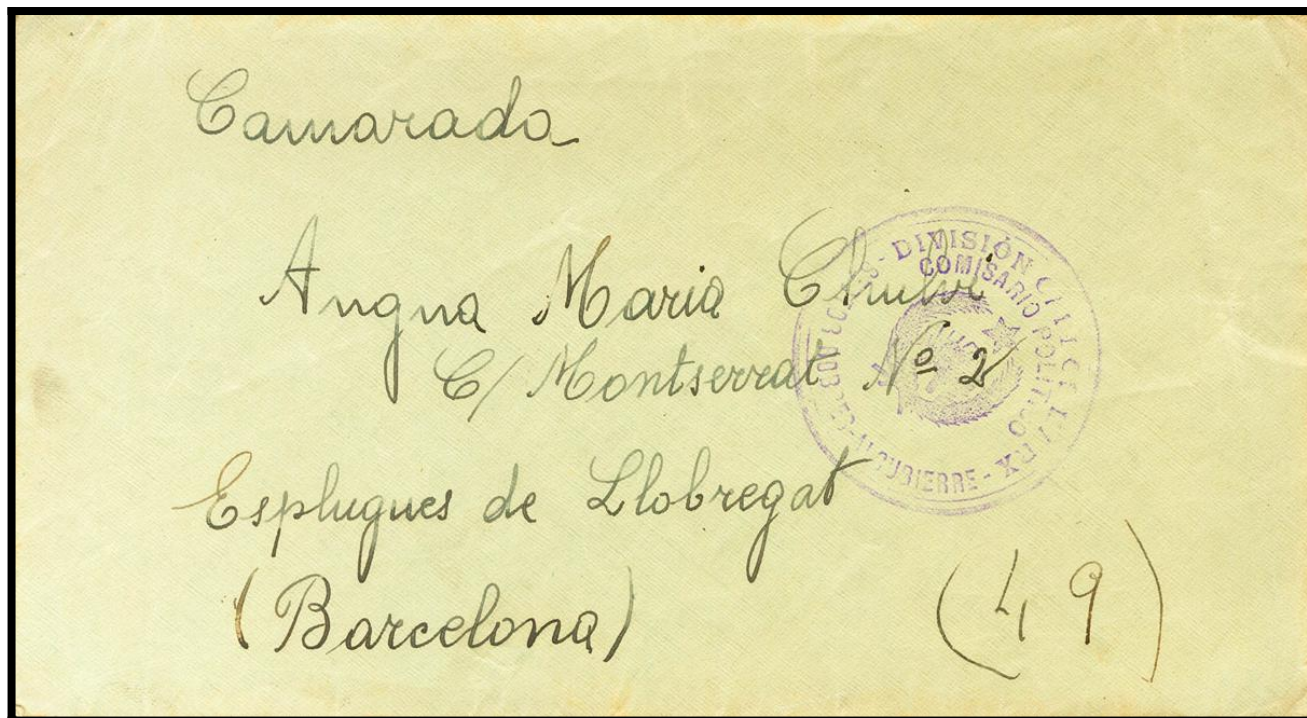 Camarada
Angna Maria
C/ Montserrat Nº 2
Esplugues de Llobregat
(Barcelona)
(49)
DIVISIÓN
COMISARIO POLÍTICO